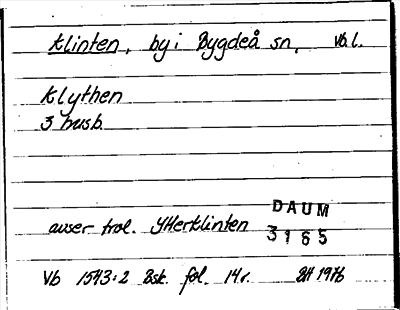 Klinten, by i Bygdeå sn, Vb.l.
Klythen
3 husb.
avser trol. Ytterklinten
DAUM
3165
Vb 1543:2 Bsk. fol. 14r. BH 1976